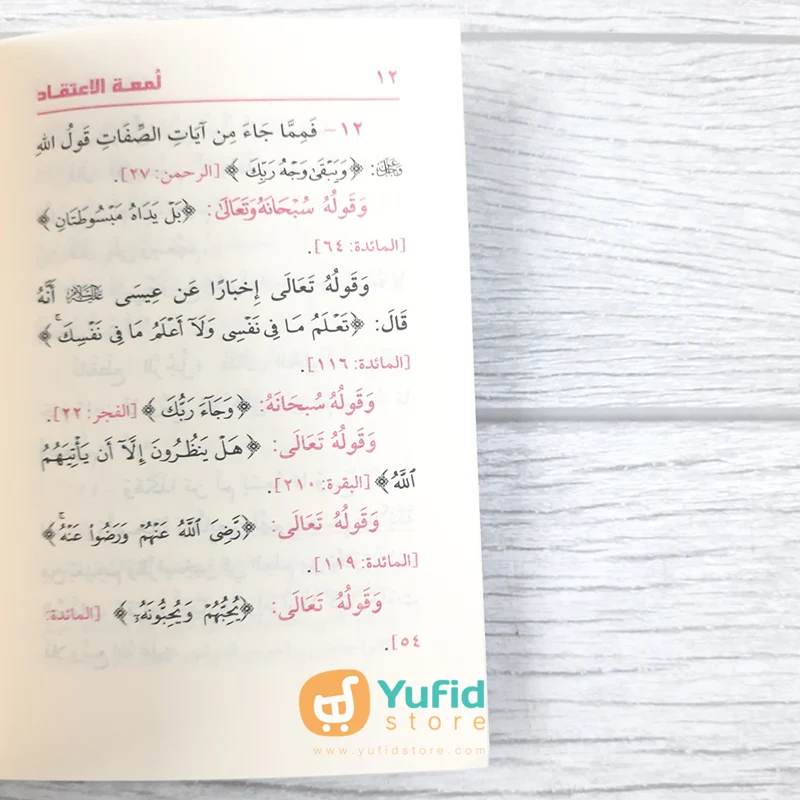 ١٢ لمعة الاعتقاد
١٢- فَمِمَّا جَاءَ مِن آيَاتِ الصِّفَاتِ قَولُ اللهِ
عَزَّوَجَلَّ: ﴿وَيَبْقَىٰ وَجْهُ رَبِّكَ﴾ [الرحمن: ٢٧].
وَقَولُهُ سُبْحَانَهُ وَتَعَالَىٰ: ﴿بَلْ يَدَاهُ مَبْسُوطَتَانِ﴾
[المائدة: ٦٤].
وَقَولُهُ تَعَالَى إِخبَارًا عَن عِيسَى عَلَيْهِ السَّلَامُ أَنَّهُ
قَالَ: ﴿تَعْلَمُ مَا فِي نَفْسِي وَلَآ أَعْلَمُ مَا فِي نَفْسِكَ ۚ﴾
[المائدة: ١١٦].
وَقَولُهُ سُبحَانَهُ: ﴿وَجَآءَ رَبُّكَ﴾ [الفجر: ٢٢].
وَقَولُهُ تَعَالَى: ﴿هَلْ يَنظُرُونَ إِلَّآ أَن يَأْتِيَهُمُ
ٱللَّهُ﴾ [البقرة: ٢١٠].
وَقَولُهُ تَعَالَى: ﴿رَّضِيَ ٱللَّهُ عَنْهُمْ وَرَضُوا۟ عَنْهُ ۚ﴾
[المائدة: ١١٩].
وَقَولُهُ تَعَالَى: ﴿يُحِبُّهُمْ وَيُحِبُّونَهُۥٓ﴾ [المائدة:
٥٤].
Yufid
store
www.yufidstore.com